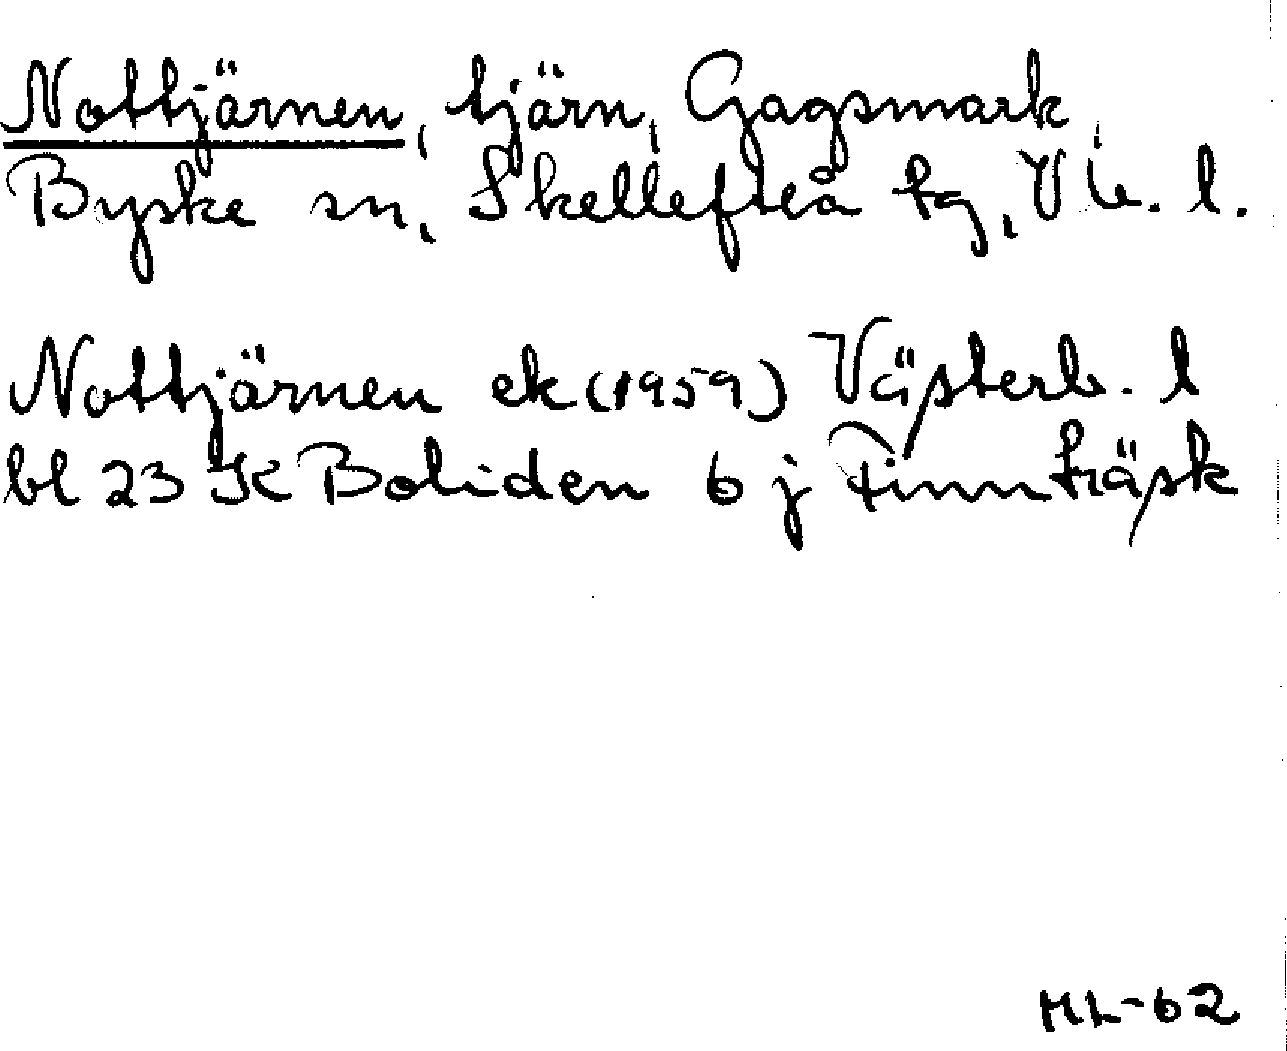 Nottjärnen, tjärn, Gagsmark,
Byske sn, Skellefteå tg, Vb. l.
Nottjärnen ek (1959) Västerb. l
bl 23 K Boliden 6 j Finnträsk
ML-62